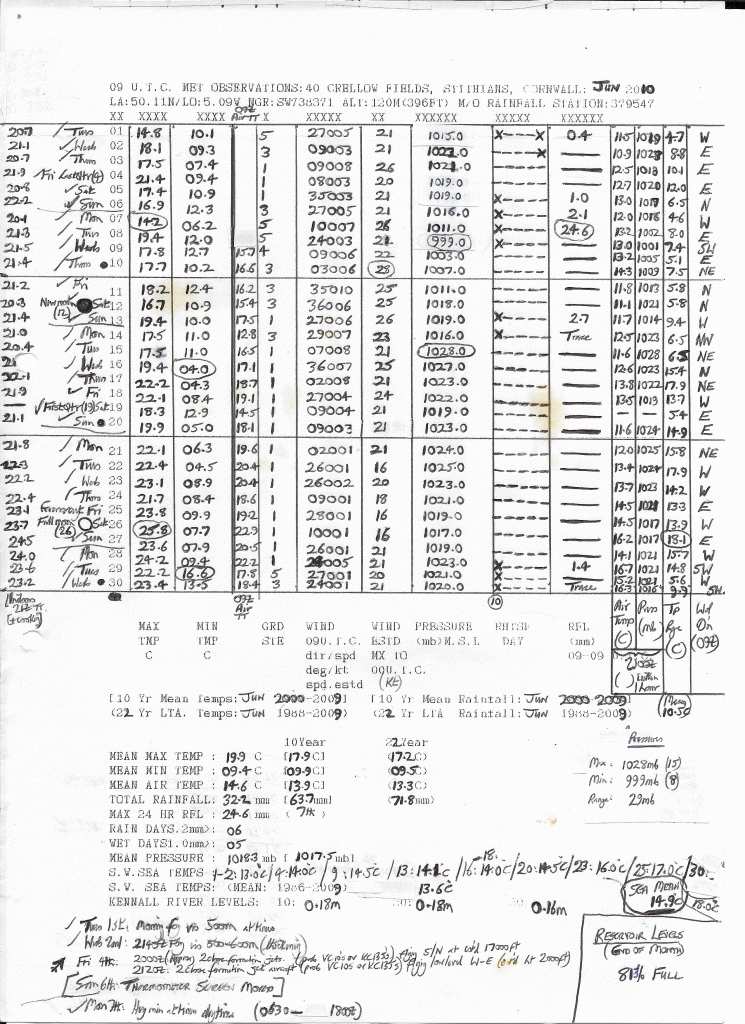 09 U.T.C. MET OBSERVATIONS:40 CRELLOW FIELDS, STITHIANS, CORNWALL: JUN 2010
LA:50.11N/LO:5.09W NGR:SW738371 ALT:120M(396FT) M/O RAINFALL STATION:379547
XX XXXX XXXX 09Z Air TT X XXXXX XX XXXXXX XXXXX XXXXX
20.7 / Tues 01 14.8 10.1 5 27005 21 1015.0 X----X 0.4 11.5 1019 4.7 W
21.1 Wed 02 18.1 09.3 3 09003 21 1022.0 -----X — 10.9 1023 8.8 E
20.7 Thu 03 17.5 07.4 1 09008 26 1021.0 ----- — 12.5 1018 10.1 E
21.9 Fri Last Qtr (4) 04 21.4 09.4 1 08003 20 1019.0 ----- — 12.7 1020 12.0 E
20.8 ✓ Sat 05 17.4 10.9 1 35003 21 1019.0 X---- 1.0 13.0 1017 6.5 N
22.2 ✓ Sun 06 16.9 12.3 3 27005 21 1016.0 X---- 2.1 12.0 1018 4.6 W
20.1 / Mon 07 14.2 06.2 5 10007 26 1011.0 X---- 24.6 13.2 1002 8.0 E
21.3 / Tues 08 19.4 12.0 5 24003 21 999.0 ----- — 13.0 1001 7.4 SW
21.5 Weds 09 17.8 12.7 15.7 4 09006 22 1003.0 ----- — 13.2 1005 5.1 E
21.4 / Thurs 10 17.7 10.2 16.6 3 03006 28 1007.0 ----- — 14.3 1009 7.5 NE
21.2 ✓ Fri 11 18.2 12.4 16.2 3 35010 25 1011.0 ----- — 11.8 1013 5.8 N
20.3 New moon (12) Sat 12 16.7 10.9 15.4 3 36006 25 1018.0 ----- — 11.1 1021 5.8 N
21.4 Sun 13 19.4 10.0 17.5 1 27006 26 1019.0 X---- 2.7 11.7 1014 9.4 W
21.0 / Mon 14 17.5 11.0 12.8 3 29007 23 1016.0 X---- Trace 12.5 1023 6.5 NW
20.4 / Tues 15 17.5 11.0 16.5 1 07008 21 1028.0 ----- — 11.6 1028 6.5 NE
21 / Wed 16 19.4 04.0 17.1 1 36007 25 1027.0 ----- — 12.6 1023 15.4 N
22.1 / Thurs 17 22.2 04.3 18.7 1 02008 21 1023.0 ----- — 13.8 1022 17.9 NE
21.9 ✓ Fri 18 22.1 08.4 19.1 1 27004 24 1022.0 ----- — 13.5 1019 13.7 W
— ✓ First Qtr (19) Sat 19 18.3 12.9 14.5 1 09004 21 1019.0 ----- — — — 5.4 E
21.1 Sun 20 19.9 05.0 18.1 1 09003 21 1023.0 ----- — 11.6 1024 14.9 E
21.8 / Mon 21 22.1 06.3 19.6 1 02001 21 1024.0 ----- — 12.0 1025 15.8 NE
22.3 / Tues 22 22.4 04.5 20.4 1 26001 16 1025.0 ----- — 13.4 1024 17.9 W
22.2 / Wed 23 23.1 08.9 20.4 1 26002 20 1023.0 ----- — 13.7 1023 14.2 W
22.4 / Thurs 24 21.7 08.4 18.6 1 09001 18 1021.0 ----- — 14.5 1021 13.3 E
23.1 Fri 25 23.8 09.9 19.2 1 28001 16 1019.0 ----- — 14.5 1017 13.9 W
23.7 Full moon (26) Sat 26 25.8 07.7 22.9 1 10001 16 1017.0 ----- — 16.2 1017 18.1 E
24.5 / Sun 27 23.6 07.9 20.5 1 26001 21 1019.0 ----- — 14.1 1021 15.7 W
24.0 Mon 28 24.2 09.4 22.2 1 24005 21 1023.0 X---- 1.4 16.7 1021 14.8 SW
23.6 / Tues 29 22.2 16.6 17.8 5 27001 20 1021.0 X---- — 15.2 1021 5.6 W
23.2 / Wed 30 23.4 13.5 18.4 3 24001 21 1020.0 X---- Trace 16.3 1016 9.9 SW
09Z Air TT (10)
MAX MIN GRD WIND WIND PRESSURE RFL Air Temp (C) Press (mb) Wd Dir (09Z)
TMP TMP STE 09U.T.C. ESTD (mb)M.S.L DAY (mm)
C C dir/spd MX 10 09-09
deg/kt 00U.T.C. 2100Z
spd.estd (Kt) within 1 hour
[10 Yr Mean Temps: JUN 2000-2009] [10 Yr Mean Rainfall: JUN 2000-2009]
(22 Yr LTA. Temps: JUN 1988-2009) (22 Yr LTA Rainfall: JUN 1988-2009) (Mean 10.5C)
10Year 22Year Pressures
MEAN MAX TEMP : 19.9 C [17.9C] (17.2C) Max: 1028mb (15)
MEAN MIN TEMP : 09.4 C [09.9C] (09.5C) Min: 999mb (8)
MEAN AIR TEMP : 14.6 C [13.9C] (13.3C) Range: 29mb
TOTAL RAINFALL: 32.2 mm [63.7mm] (71.8mm)
MAX 24 HR RFL : 24.6 mm ( 7th )
RAIN DAYS.2mm>: 06
WET DAYS1.0mm>: 05
MEAN PRESSURE : 1018.3 mb [ 1017.5 mb]
S.W.SEA TEMPS :1-2: 13.0°C/4: 14.0°C/ 9: 14.5°C /13: 14.1°C/16-18: 14.0°C/20: 14.5°C/23: 16.0°C/25: 17.0°C/30: 18.0°C
S.W. SEA TEMPS: (MEAN: 1986-2009) 13.6°C SEA MEAN 14.9C
KENNALL RIVER LEVELS: 10: 0.18m 0.18m 0.16m
/ Tues 1st: Morning fog vis 500m at times
Wed 2nd: 2145Z Fog vis 500-600m
Fri 4th: 2000Z (Approx) 2 chase formation jets (prob VC10s or KC135s) flying S/N at est'd 17000ft
2120Z: 2 chase formation jet aircraft (prob VC10s or KC135s) flying overland W-E
[Sun 6th: THERMOMETER SCREEN MOVED]
✓ Mon 7th: Hvy rain at times daytime (0530— 1800Z)
RESERVOIR LEVELS
(END OF MONTH)
81% FULL